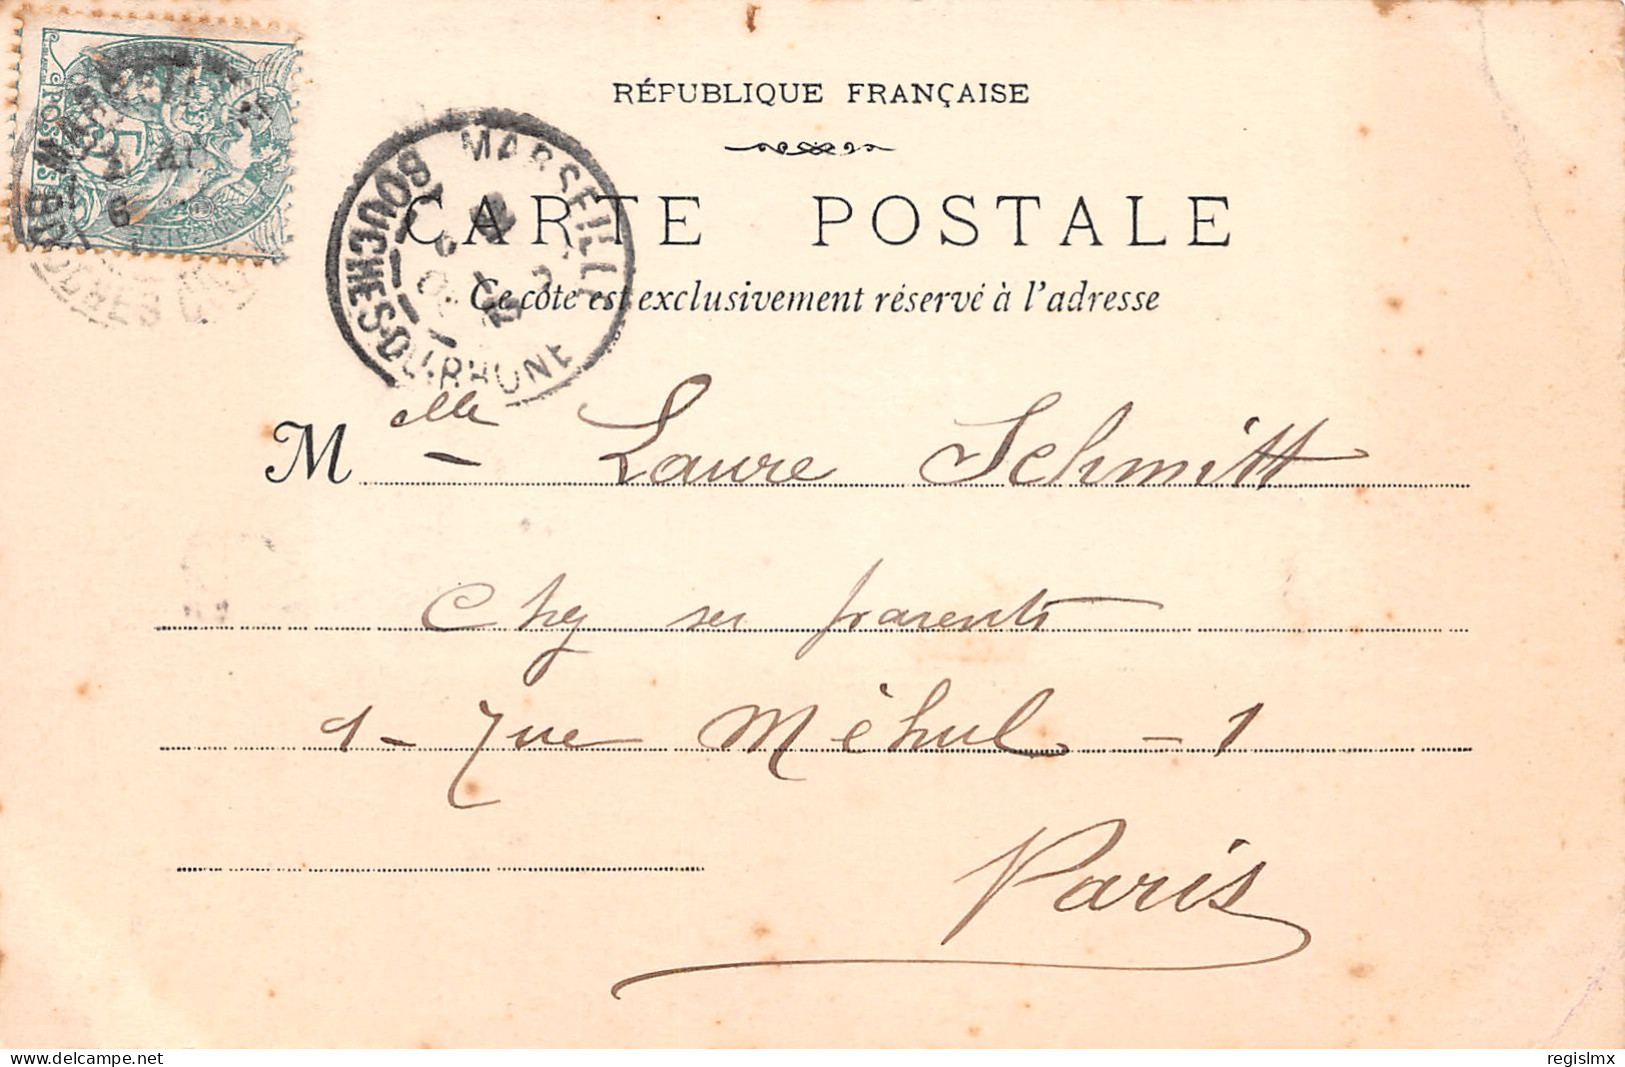 RÉPUBLIQUE FRANÇAISE
CARTE POSTALE
Ce côté est exclusivement réservé à l'adresse
MARSEILLE
BOUCHES-DU-RHONE
POSTES
5
Mlle Laure Schmitt
Chez ses parents
1 - rue Méhul - 1
Paris
regislmx